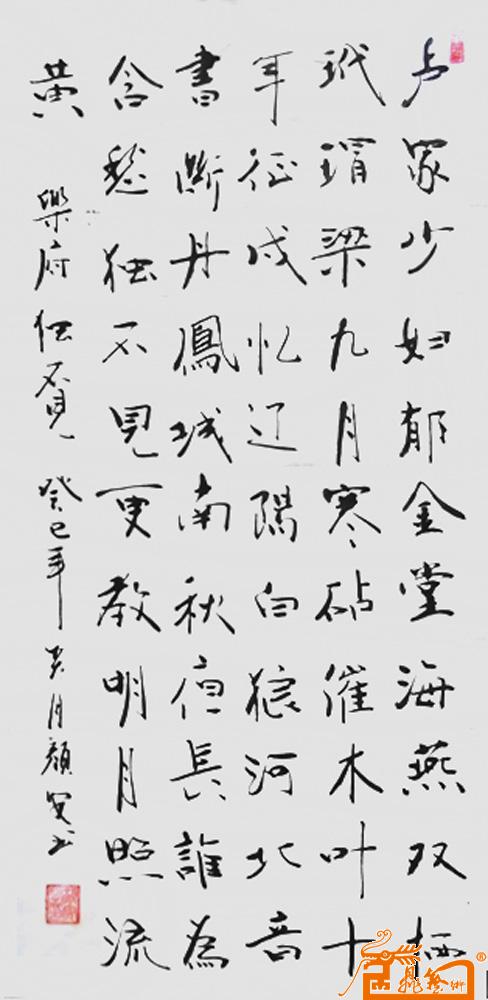 卢家少妇郁金堂海燕双栖
玳瑁梁九月寒砧催木叶十
年征戍忆辽陽白狼河北音
書断丹鳳城南秋夜長誰為
含愁独不見更教明月照流
黄 樂府独不見 癸巳年月顏书